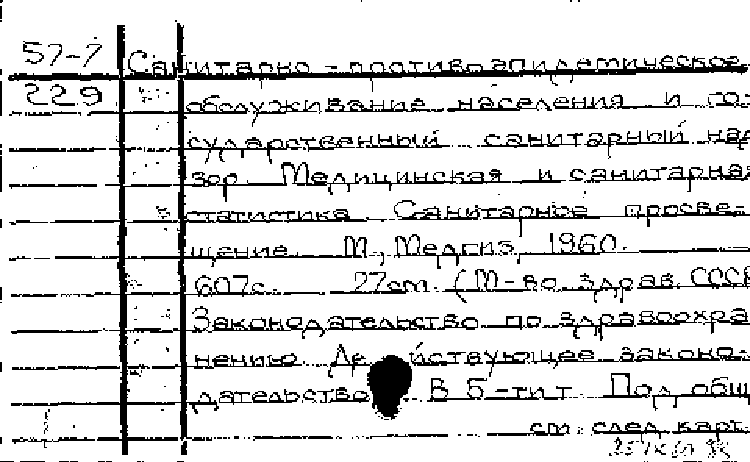 57-7 Санитарно-противоэпидемическое
229 обслуживание населения и го-
сударственный санитарный над-
зор. Медицинская и санитарная
статистика. Санитарное просве-
щение. М., Медгиз, 1960.
607с. 27см. (М-во здрав. СССР
Законодательство по здравоохра-
нению. Действующее законо-
дательство В 5-ти т. Под общ
см. след. карт.